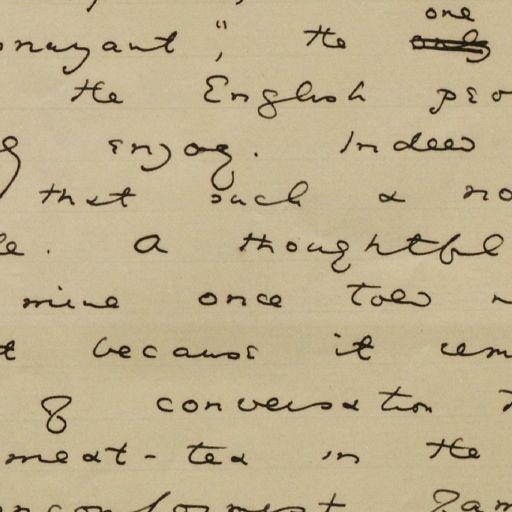 one
", the only
the English peo
enjoy. Indeed
that such a no
le. A thoughtful
mine once told
t because it rem
of conversation
meat-tea in the